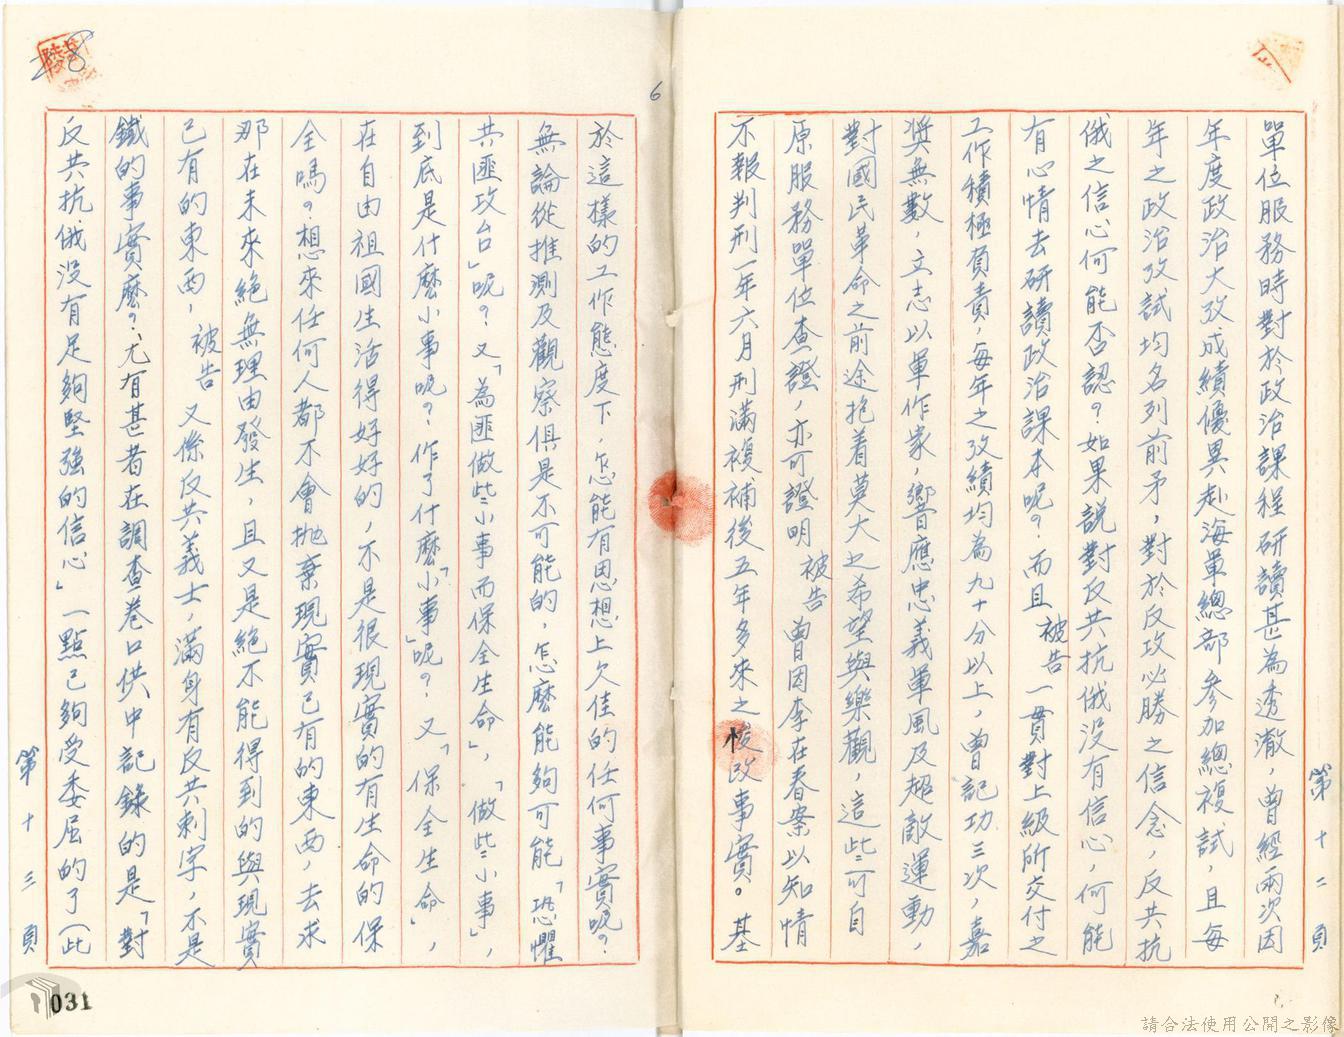 單位服務時對於政治課程研讀甚為透澈，曾經兩次因
年度政治大攷成績優異赴海軍總部參加總複試，且每
年之政治攷試均名列前矛，對於反攻必勝之信念，反共抗
俄之信心何能否認？如果說對反共抗俄沒有信心，何能
有心情去研讀政治課本呢？而且被告一貫對上級所交付之
工作積極負責，每年之攷績均為九十分以上，曾記功三次，嘉
獎無數，立志以軍作家，響應忠義軍風及超敵運動，
對國民革命之前途抱着莫大之希望與樂觀，這些可自
原服務單位查證，亦可證明被告曾因李在春案以知情
不報判刑一年六月刑滿複補後五年多來之悛改事實。基
第十二頁
於這樣的工作態度下，怎能有思想上欠佳的任何事實呢？
無論從推測及觀察俱是不可能的，怎麼能夠可能「恐懼
共匪攻台」呢？又「為匪做些小事而保全生命」，「做些小事」，
到底是什麼小事呢？作了什麼「小事」呢？又「保全生命」，
在自由祖國生活得好好的，不是很現實的有生命的保
全嗎？想來任何人都不會拋棄現實已有的東西，去求
那在未來絕無理由發生，且又是絕不能得到的與現實
已有的東西，被告又係反共義士，滿身有反共刺字，不是
鐵的事實麼？尤有甚者在調查卷口供中記錄的是「對
反共抗俄沒有足夠堅強的信心」一點已夠受委屈的了（此
第十三頁
28
6
031
請合法使用公開之影像